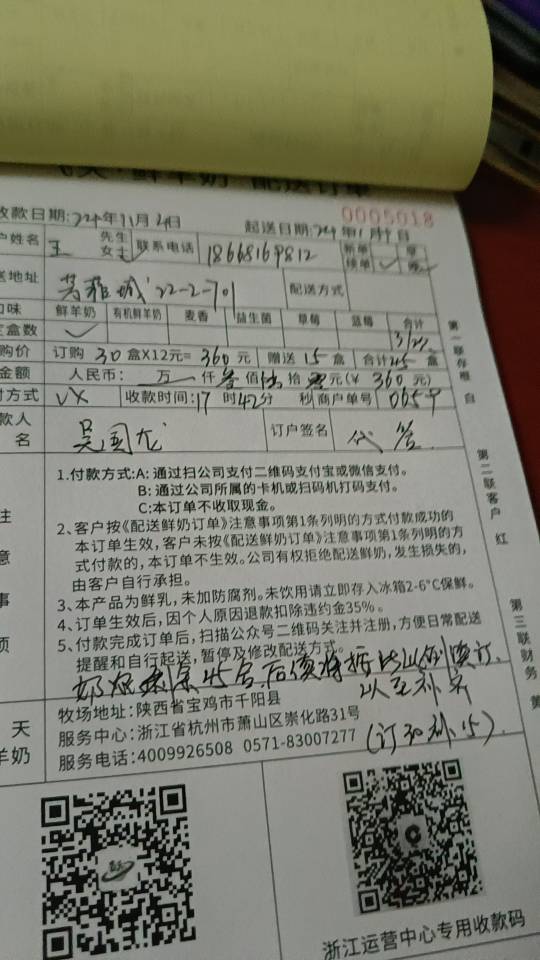 鲜羊奶·配送订单
收款日期:24年11月4日 起送日期:24年11月 日 0005018
户姓名 王 先生 女士 联系电话 18668169812 新单 续单
送地址 芳雅城 22-2-701 配送方式
口味 鲜羊奶 有机鲜羊奶 麦香 益生菌 草莓 蓝莓 合计
定盒数
购价 订购 30 盒X12元= 360 元 赠送 15 盒 合计 45 盒
金额 人民币: 万 仟 叁 佰 陆 拾 零 元(¥ 360 元)
付方式 VX 收款时间:17 时 42 分 秒 商户单号
款人名 吴国龙 订户签名 代签
注意事项
1.付款方式:A: 通过扫公司支付二维码支付宝或微信支付。
B: 通过公司所属的卡机或扫码机打码支付。
C:本订单不收取现金。
2、客户按《配送鲜奶订单》注意事项第1条列明的方式付款成功的
本订单生效，客户未按《配送鲜奶订单》注意事项第1条列明的方
式付款的，本订单不生效。公司有权拒绝配送鲜奶，发生损失的，
由客户自行承担。
3、本产品为鲜乳，未加防腐剂。未饮用请立即存入冰箱2-6°C保鲜。
4、订单生效后，因个人原因退款扣除违约金35%。
5、付款完成订单后，扫描公众号二维码关注并注册，方便日常配送
提醒和自行起送，暂停及修改配送方式。
(订30补15)
牧场地址:陕西省宝鸡市千阳县
服务中心:浙江省杭州市萧山区崇化路31号
服务电话:4009926508 0571-83007277
天
羊奶
浙江运营中心专用收款码
第一联存根 白
第二联客户 红
第三联财务